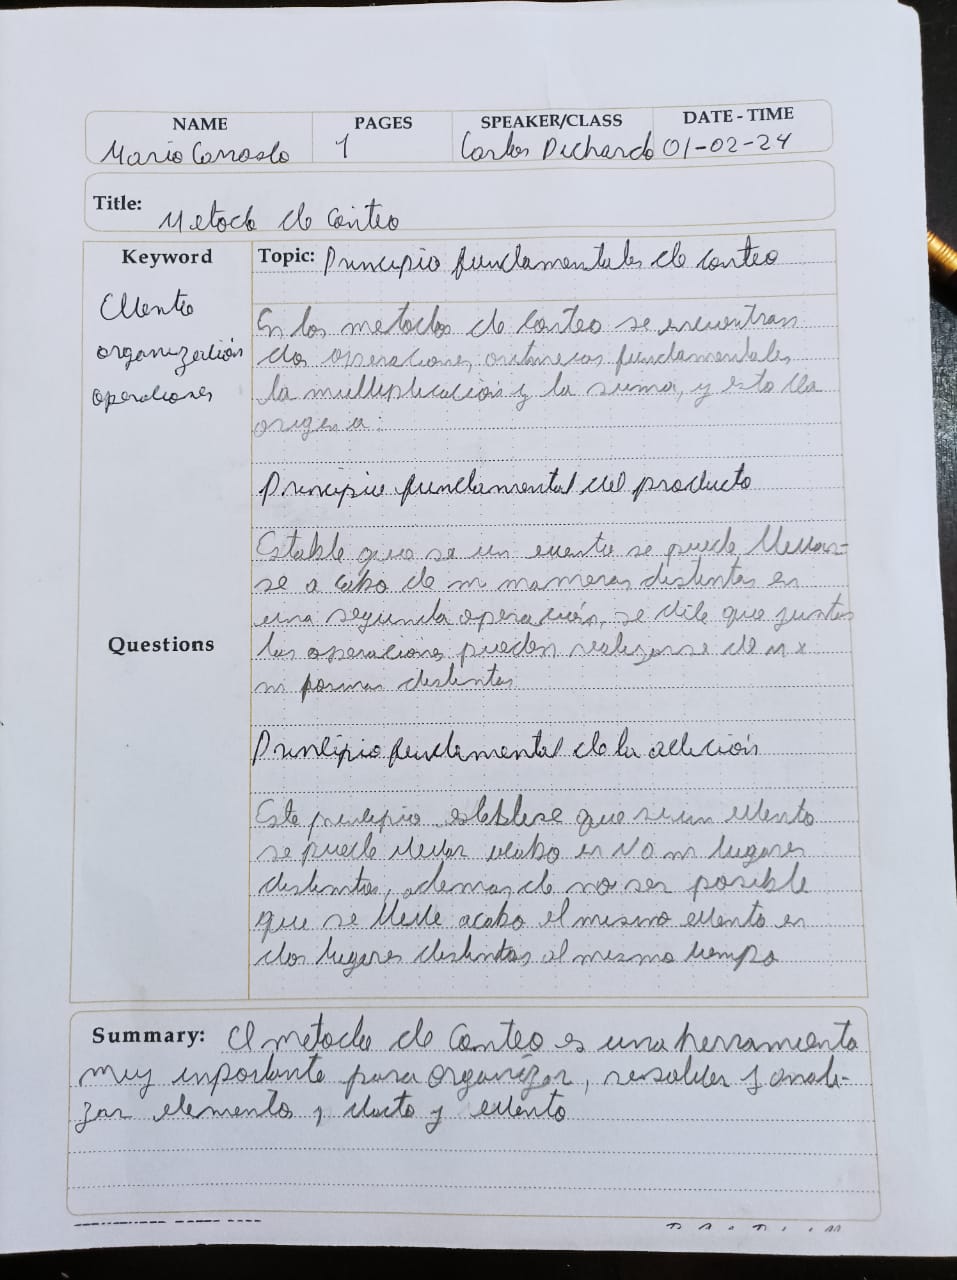 NAME PAGES SPEAKER/CLASS DATE - TIME
Mario 1 Carlos Pichardo 01-02-24
Title: Metodo de Conteo
Keyword
Evento
organización
operaciones
Topic: Principio fundamentales de conteo
En los metodos de conteo se encuentran
dos operaciones aritmecas fundamentales
la multiplicación y la suma, y esto da
origen a:
Principio fundamental del producto
Estable que si un evento se puede llevar-
se a cabo de m maneras distintas en
una segunda operación, se dice que juntas
Questions
las operaciones pueden realizarse de n x
m formas distintas
Principio fundamental de la adición
Este principio establese que si un evento
se puede llevar acabo en N o m lugares
distintos, ademas de no ser posible
que se lleve acabo el mismo evento en
dos lugares distintos al mismo tiempo
Summary: El metodo de Conteo es una herramienta
muy inportante para organizar, resolver y anali-
zar elemento, y evento